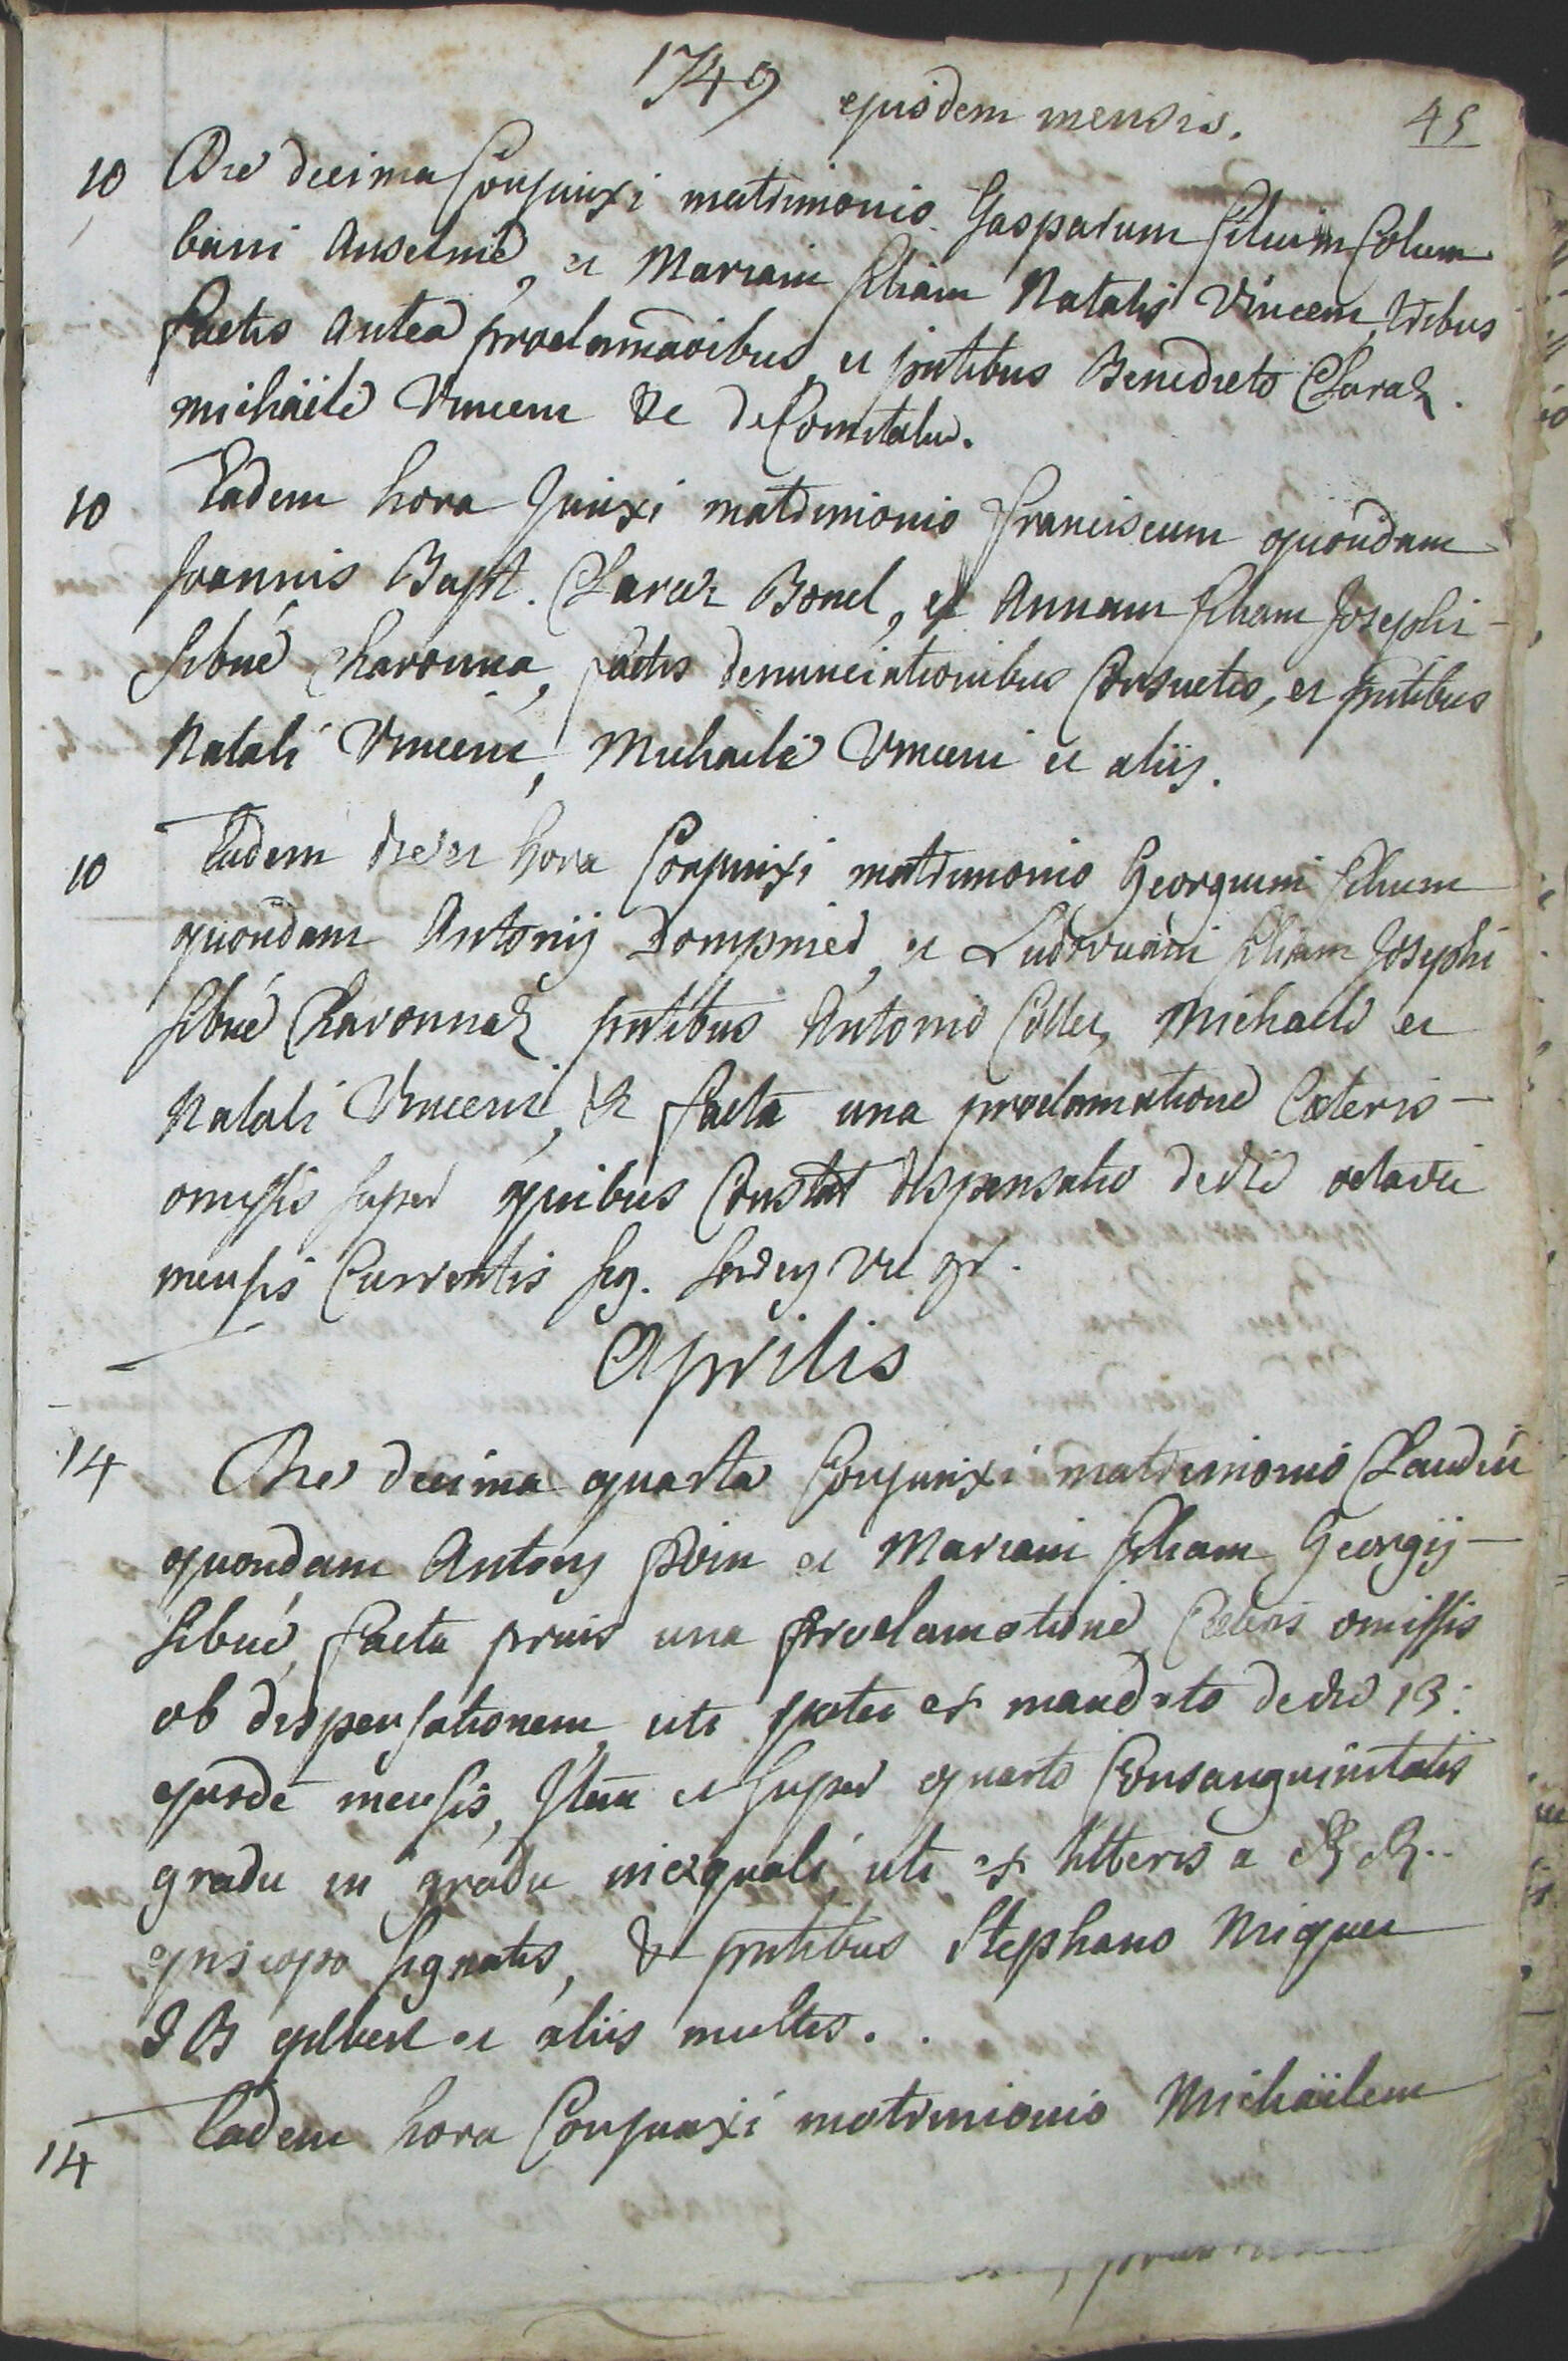 1749 ejusdem mensis. 45
10 Die decima Conjunxi matrimonio Gasparum filium Colum
bani Anselme, et Mariam filiam Natalis Vincent, tribus
factis antea proclamaõnibus, et pñtibus Benedicto Claraz.
michäele Vincent &c de Comitatu.
10 Eadem hora junxi matrimonio franciscum quondam
Joannis Bapt. Claraz Bonel, et Annam filiam Josephi -
sibué Chavonna, factis denunciationibus Consuetis, et pñtibus
Natali Vincent, Michaele Vincent et aliis.
10 Eadem die et hora Conjunxi matrimonio Georgium filium
quondam Antonij Dompnied, et Ludovicam filiam Josephi
sibué Chavonnaz pñtibus Antonio Collet, Michaele et
Natali Vincent, & facta una proclamatione Cæteris -
omissis super quibus Constat dispensatio de die octava
mensis Currentis sig. vic. gr.
Aprilis
14 Die decima quarta Conjunxi matrimonio Claudiũ
quondam Antonij et Mariam filiam Georgij -
sibué, facta prius una proclamatione, Cæteris omissis
ob dispensationem, uti patet ex mandato de die 13:
ejusdē mensis, Item et super quarto Consanguinitatis
gradu in gradu inæquali, uti ex litteris a RR..
episcopo signatis, & pñtibus Stephano Miquet
J B gilbert et aliis multis.
14 Eadem hora Conjunxi matrimonio Michäelem